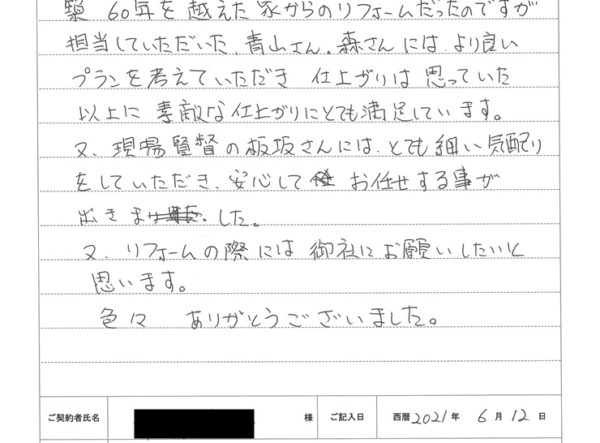 築60年を越えた家からのリフォームだったのですが
担当していただいた、青山さん、森さんには より良い
プランを考えていただき 仕上がりは 思っていた
以上に 素敵な仕上がりにとても満足しています。
又、現場監督の板坂さんには、とても細い気配り
をしていただき、安心して お任せする事が
出きました。
又、リフォームの際には 御社にお願いしたいと
思います。
色々 ありがとうございました。
ご契約者氏名 様 ご記入日 西暦2021年 6月12日